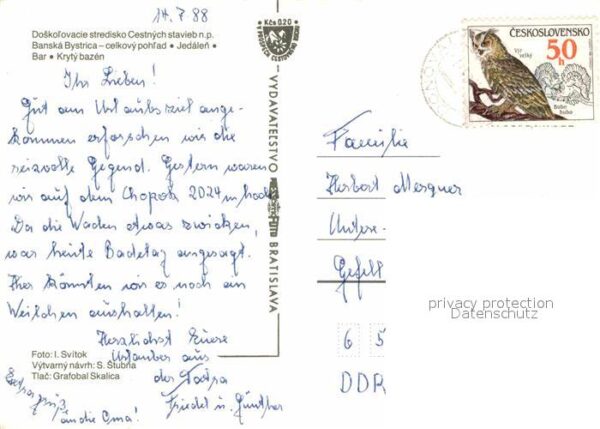 14.7.88
Doškoľovacie stredisko Cestných stavieb n.p.
Banská Bystrica – celkový pohľad • Jedáleň •
Bar • Krytý bazén
Ihr Lieben!
Gut am Urlaubsziel ange-
kommen erforschen wir die
reizvolle Gegend. Gestern waren
wir auf dem Chopok 2024 m hoch.
Da die Waden etwas zwicken,
war heute Badetag angesagt.
Hier könnten wir es noch ein
Weilchen aushalten!
Herzlichst Eure
Urlauber aus
der Tatra
Friedel u. Günther
Extragruß
an die Oma!
Foto: I. Svítok
Výtvarný návrh: S. Štubňa
Tlač: Grafobal Skalica
Kčs 0,20
VYDAVATEĽSTVO
BRATISLAVA
ČESKOSLOVENSKO
50 h
Výr
veľký
Bubo
bubo
Familie
Herbert Mergner
Untere
Gefell
privacy protection
Datenschutz
6 5
DDR